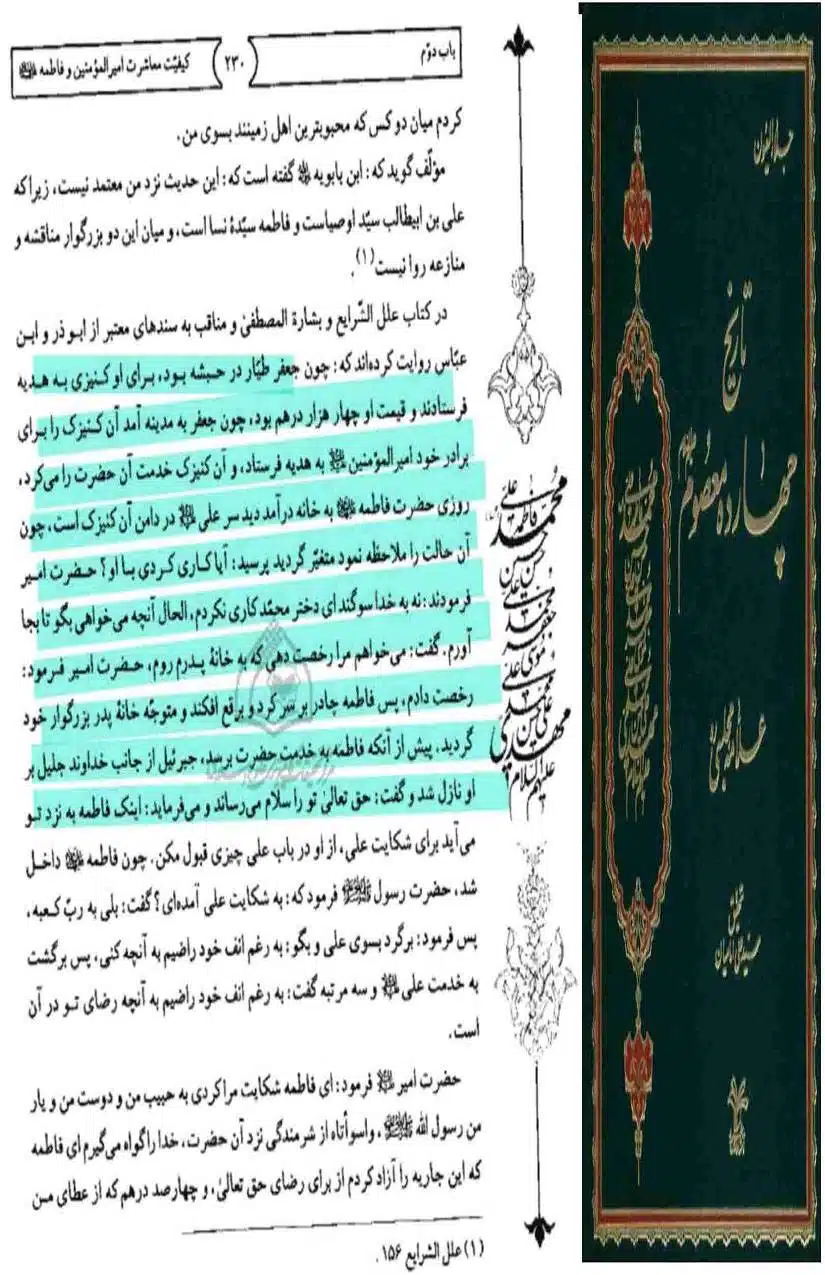 باب دوّم
۲۳۰
کیفیّت معاشرت امیرالمؤمنین و فاطمه علیهما السلام
کردم میان دو کس که محبوبترین اهل زمینند بسوی من.
مؤلّف گوید که: ابن بابویه گفته است که: این حدیث نزد من معتمد نیست، زیرا که
علی بن ابیطالب سیّد اوصیاست و فاطمه سیّدهٔ نسا است، و میان این دو بزرگوار مناقشه و
منازعه روا نیست(۱).
در کتاب علل الشّرایع و بشارة المصطفیٰ و مناقب به سندهای معتبر از ابوذر و ابن
عبّاس روایت کرده‌اند که: چون جعفر طیّار در حبشه بود، برای او کنیزی به هدیه
فرستادند و قیمت او چهار هزار درهم بود، چون جعفر به مدینه آمد آن کنیزک را برای
برادر خود امیرالمؤمنین علیه السلام به هدیه فرستاد، و آن کنیزک خدمت آن حضرت را می‌کرد،
روزی حضرت فاطمه علیها السلام به خانه درآمد دید سر علی علیه السلام در دامن آن کنیزک است، چون
آن حالت را ملاحظه نمود متغیّر گردید پرسید: آیا کاری کردی با او؟ حضرت امیر
فرمودند: نه به خدا سوگند ای دختر محمّد کاری نکردم، الحال آنچه می‌خواهی بگو تا بجا
آورم. گفت: می‌خواهم مرا رخصت دهی که به خانهٔ پدرم روم، حضرت امیر فرمود:
رخصت دادم، پس فاطمه چادر بر سر کرد و برقع افکند و متوجّه خانهٔ پدر بزرگوار خود
گردید، پیش از آنکه فاطمه به خدمت حضرت برسد، جبرئیل از جانب خداوند جلیل بر
او نازل شد و گفت: حق تعالیٰ تو را سلام می‌رساند و می‌فرماید: اینک فاطمه به نزد تو
می‌آید برای شکایت علی، از او در باب علی چیزی قبول مکن. چون فاطمه علیها السلام داخل
شد، حضرت رسول صلی الله علیه و آله فرمود که: به شکایت علی آمده‌ای؟ گفت: بلی به ربّ کعبه،
پس فرمود: برگرد بسوی علی و بگو: به رغم انف خود راضیم به آنچه کنی، پس برگشت
به خدمت علی علیه السلام و سه مرتبه گفت: به رغم انف خود راضیم به آنچه رضای تو در آن
است.
حضرت امیر علیه السلام فرمود: ای فاطمه شکایت مرا کردی به حبیب من و دوست من و یار
من رسول الله صلی الله علیه و آله، واسوأتاه از شرمندگی نزد آن حضرت، خدا را گواه می‌گیرم ای فاطمه
که این جاریه را آزاد کردم از برای رضای حق تعالیٰ، و چهارصد درهم که از عطای من
(۱) علل الشرایع ۱۵۶.
جلاء العیون
تاریخ
چهارده معصوم
علامه مجلسی
تحقیق
سید علی امامیان